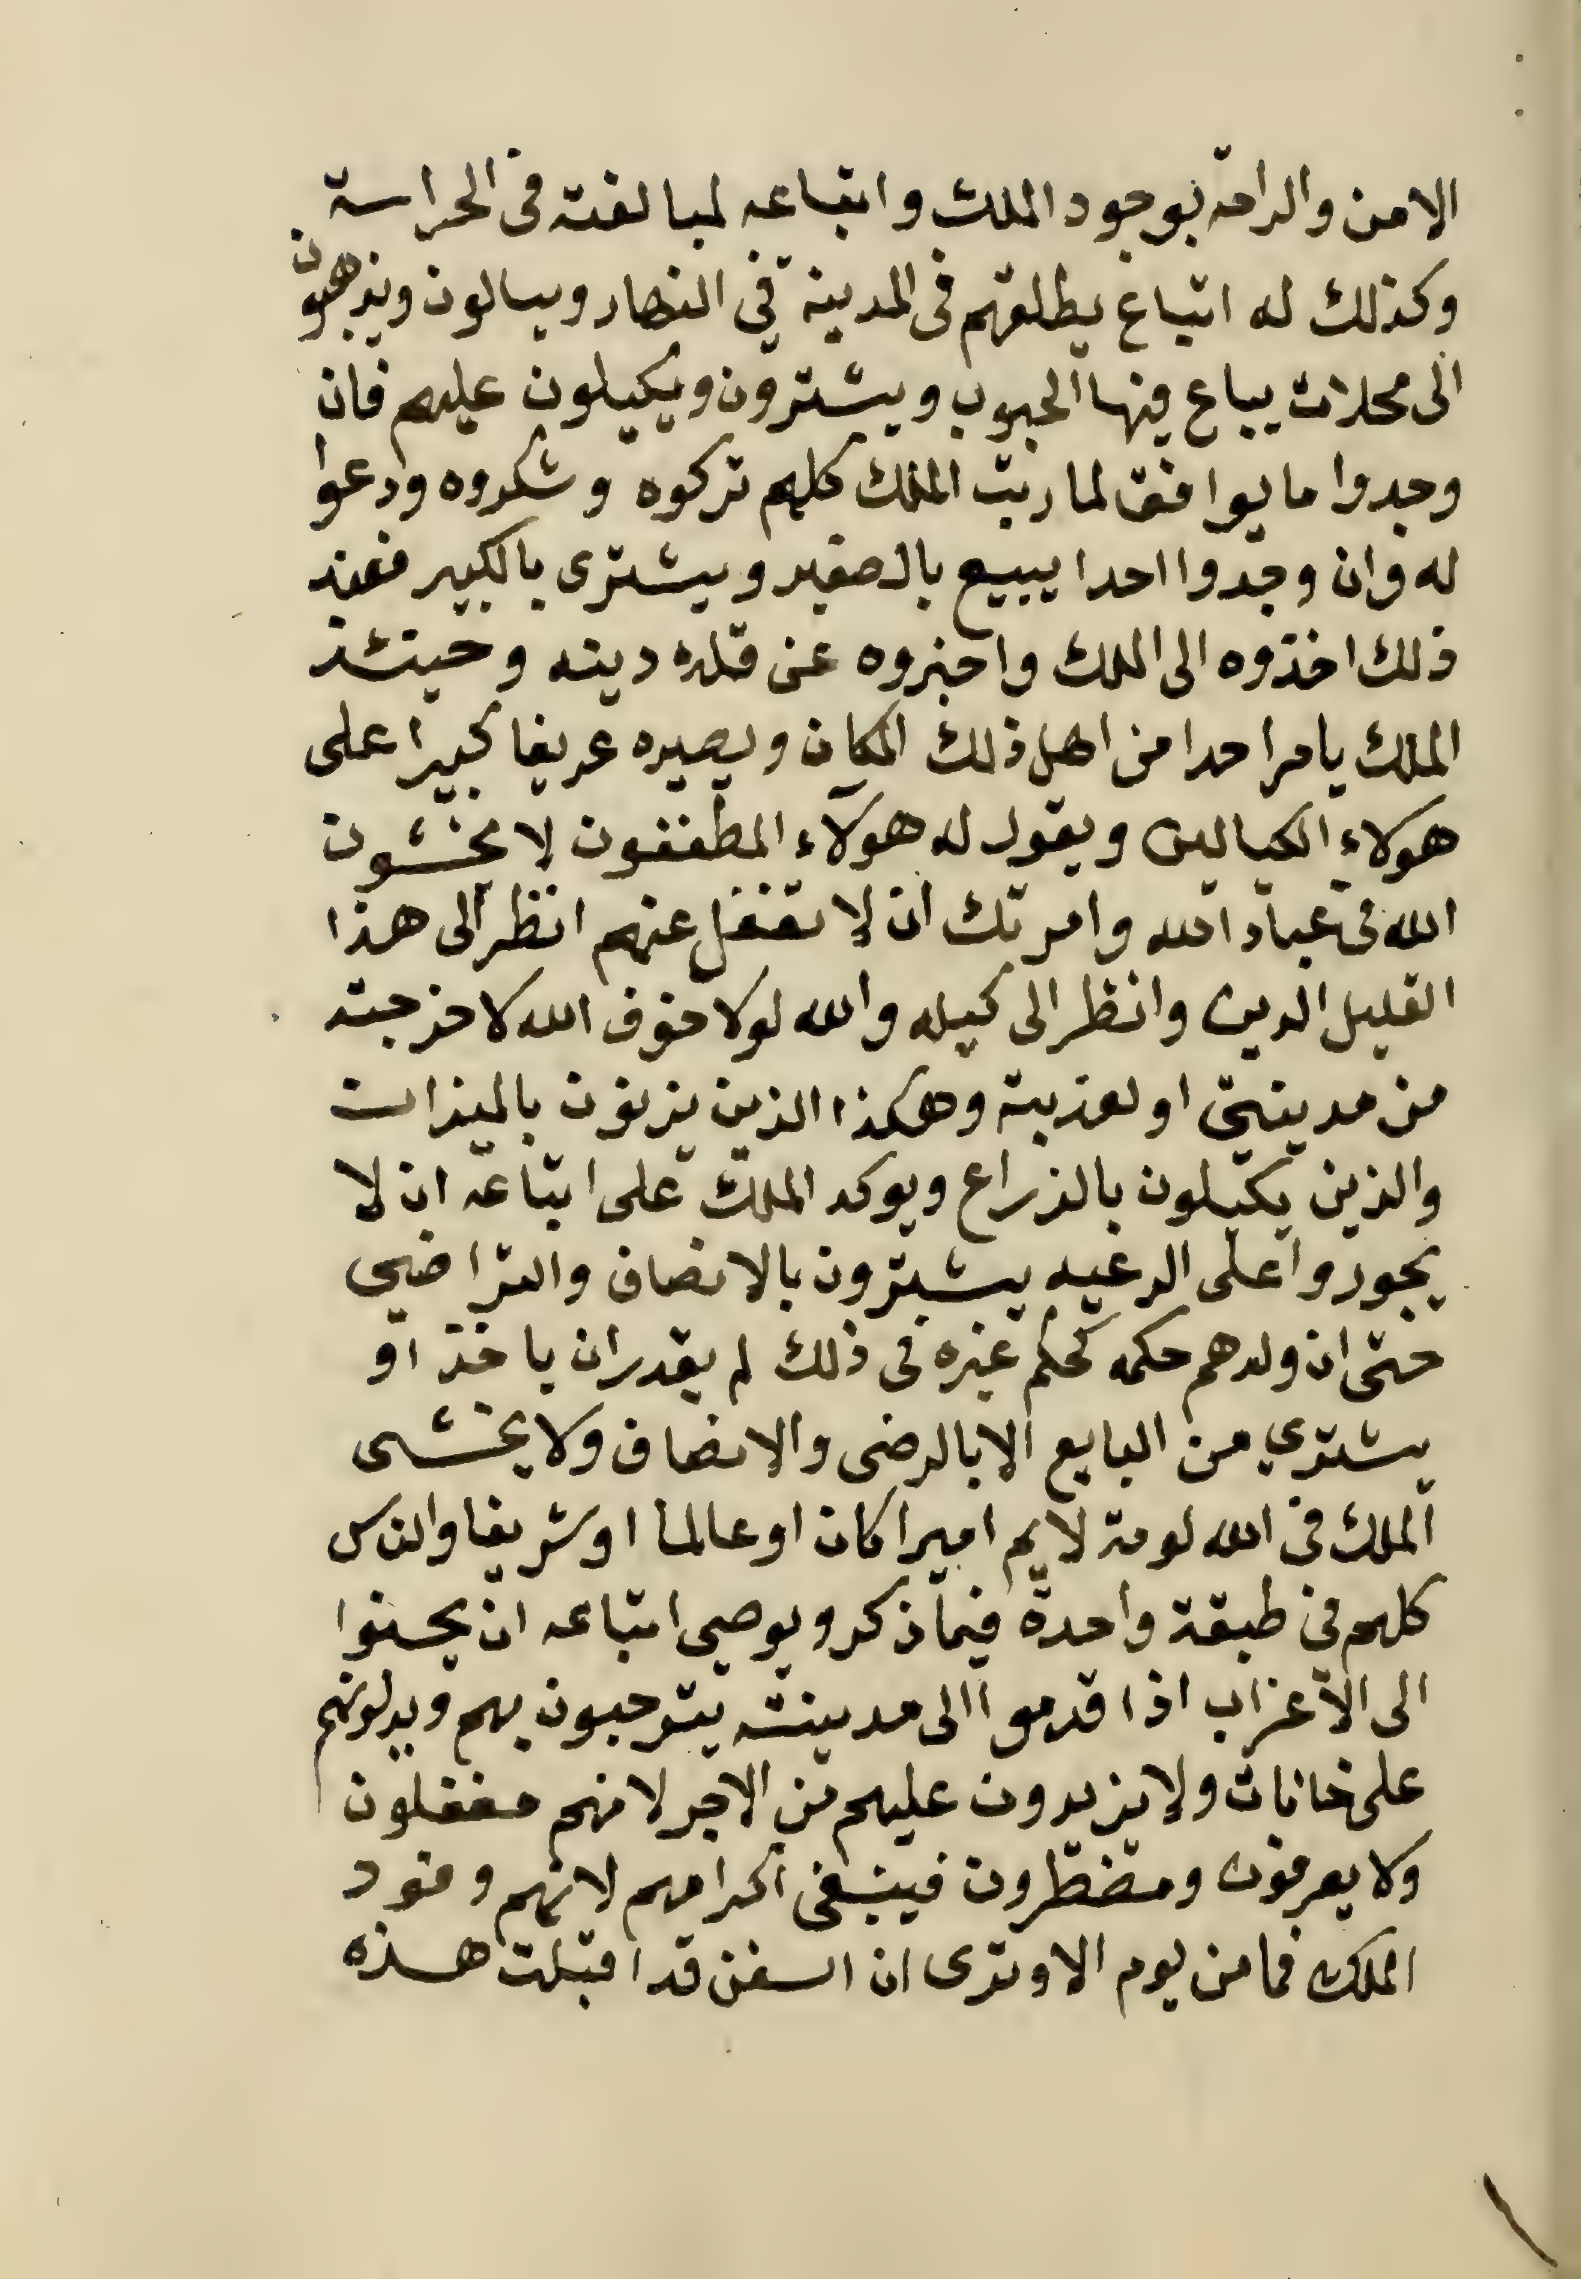 الامن والراحة بوجود الملك واتباعه لمبالغته فى الحراسة
وكذلك له اتباع يطلعهم فى المدينة في النهار ويسالون ويذهبون
الى محلات يباع فيها الحبوب ويشترون ويكيلون عليهم فان
وجدوا ما يوافق لما رتب الملك كلهم تركوه وشكروه ودعوا
له وان وجدوا احدا يبيع بالصغير ويشترى بالكبير فعند
ذلك اخذوه الى الملك واخبروه عن قلة دينه وحينئذ
الملك يامر احدا من اهل ذلك المكان ويصيره عريفا كبيرا على
هولاء الكيالين ويقول له هولآء المطففون لا يخشون
الله فى عباد الله وامرتك ان لا تغفل عنهم انظر الى هذا
القليل الدين وانظر الى كيله والله لولا خوف الله لاخرجته
من مدينتي او لعذبته وهكذا الذين يزنون بالميزان
والذين يكيلون بالذراع ويوكد الملك على اتباعه ان لا
يجوروا على الرعيه يشترون بالانصاف والتراضي
حتى ان ولدهم حكمه كحكم غيره فى ذلك لم يقدر ان ياخذ او
يشتري من البايع الا بالرضى والانصاف ولا يخشى
الملك فى الله لومة لايم اميرا كان او عالما او شريفا والناس
كلهم فى طبقة واحدة فيما ذكر ويوصى اتباعه ان يحسنوا
الى الاغراب اذا قدموا الى مدينته يترحبون بهم ويدلونهم
على خانات ولا يزيدون عليهم من الاجر لانهم مغفلون
ولا يعرفون ومضطرون فينبغى اكرامهم لانهم وفود
الملك فما من يوم الا وترى ان السفن قد اقبلت هذه